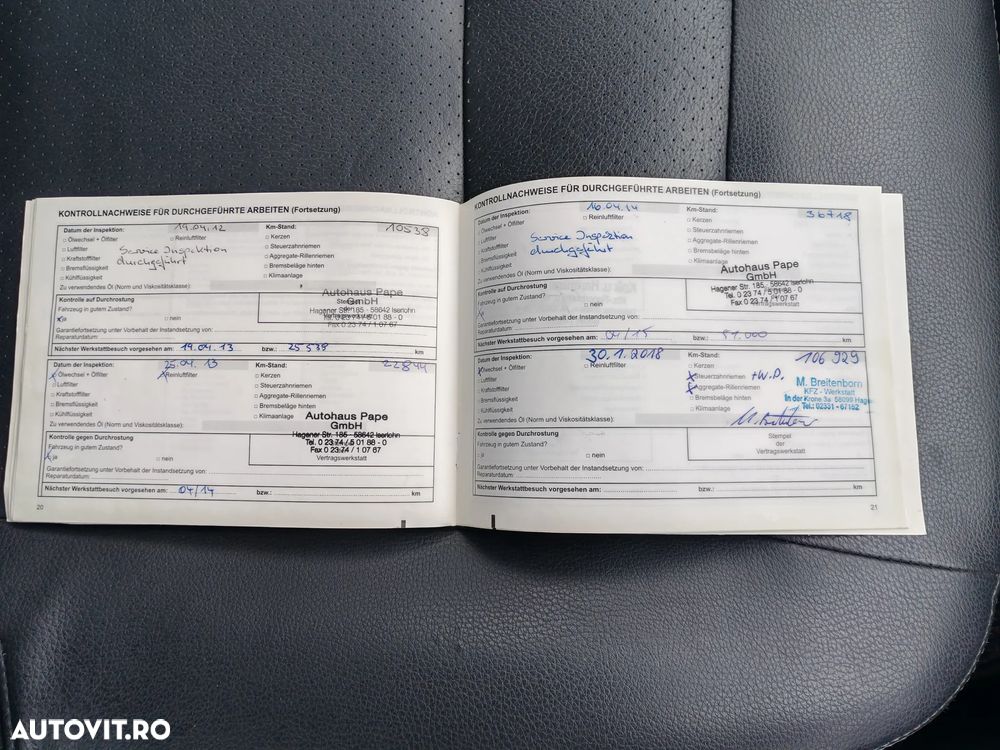 KONTROLLNACHWEISE FÜR DURCHGEFÜHRTE ARBEITEN (Fortsetzung)
Datum der Inspektion: 19.04.12 Km-Stand: 10538
Ölwechsel + Ölfilter Reinluftfilter Kerzen
Luftfilter Service Inspektion Steuerzahnriemen
Kraftstofffilter durchgeführt Aggregate-Rillenriemen
Bremsflüssigkeit Bremsbeläge hinten
Kühlflüssigkeit Klimaanlage
Zu verwendendes Öl (Norm und Viskositätsklasse):
Kontrolle auf Durchrostung
Fahrzeug in gutem Zustand?
x ja nein
Autohaus Pape
GmbH
Hagener Str. 185 - 58642 Iserlohn
Tel. 0 23 74 / 5 01 88 - 0
Fax 0 23 74 / 1 07 67
Garantiefortsetzung unter Vorbehalt der Instandsetzung von:
Reparaturdatum:
Nächster Werkstattbesuch vorgesehen am: 19.04.13 bzw.: 25538 km
Datum der Inspektion: 25.04.13 Km-Stand: 22844
x Ölwechsel + Ölfilter x Reinluftfilter Kerzen
Luftfilter Steuerzahnriemen
Kraftstofffilter Aggregate-Rillenriemen
Bremsflüssigkeit Bremsbeläge hinten
Kühlflüssigkeit Klimaanlage
Zu verwendendes Öl (Norm und Viskositätsklasse):
Kontrolle gegen Durchrostung
Fahrzeug in gutem Zustand?
x ja nein
Autohaus Pape
GmbH
Hagener Str. 185 - 58642 Iserlohn
Tel. 0 23 74 / 5 01 88 - 0
Fax 0 23 74 / 1 07 67
Vertragswerkstatt
Garantiefortsetzung unter Vorbehalt der Instandsetzung von:
Reparaturdatum:
Nächster Werkstattbesuch vorgesehen am: 04/14 bzw.: km
20
KONTROLLNACHWEISE FÜR DURCHGEFÜHRTE ARBEITEN (Fortsetzung)
Datum der Inspektion: 16.04.14 Km-Stand: 36718
Ölwechsel + Ölfilter Reinluftfilter Kerzen
Luftfilter Service Inspektion Steuerzahnriemen
Kraftstofffilter durchgeführt Aggregate-Rillenriemen
Bremsflüssigkeit Bremsbeläge hinten
Kühlflüssigkeit Klimaanlage
Zu verwendendes Öl (Norm und Viskositätsklasse):
Kontrolle auf Durchrostung
Fahrzeug in gutem Zustand?
ja nein
Autohaus Pape
GmbH
Hagener Str. 185 - 58642 Iserlohn
Tel. 0 23 74 / 5 01 88 - 0
Fax 0 23 74 / 1 07 67
Garantiefortsetzung unter Vorbehalt der Instandsetzung von:
Reparaturdatum:
Nächster Werkstattbesuch vorgesehen am: 04/15 bzw.: 51.000 km
Datum der Inspektion: 30.1.2018 Km-Stand: 106 929
x Ölwechsel + Ölfilter Reinluftfilter Kerzen
Luftfilter x Steuerzahnriemen +W.P.
Kraftstofffilter x Aggregate-Rillenriemen
Bremsflüssigkeit Bremsbeläge hinten
Kühlflüssigkeit Klimaanlage
M. Breitenborn
KFZ - Werkstatt
In der Krone 3a 58099 Hagen
Tel.: 02331 - 67152
Zu verwendendes Öl (Norm und Viskositätsklasse):
Kontrolle gegen Durchrostung
Fahrzeug in gutem Zustand?
ja nein
Stempel
der
Vertragswerkstatt
Garantiefortsetzung unter Vorbehalt der Instandsetzung von:
Reparaturdatum:
Nächster Werkstattbesuch vorgesehen am: bzw.: km
21
AUTOVIT.RO